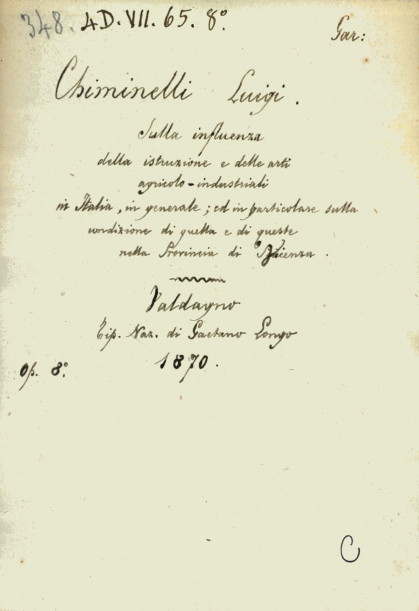 348. 4D. VII. 65. 8°
Gar:
Chiminelli Luigi.
Sulla influenza
della istruzione e delle arti
agricolo-industriali
in Italia, in generale; ed in particolare sulla
condizione di quella e di queste
nella Provincia di Vicenza.
Valdagno
Tip. Naz. di Gaetano Longo
1870.
Op. 8°.
C